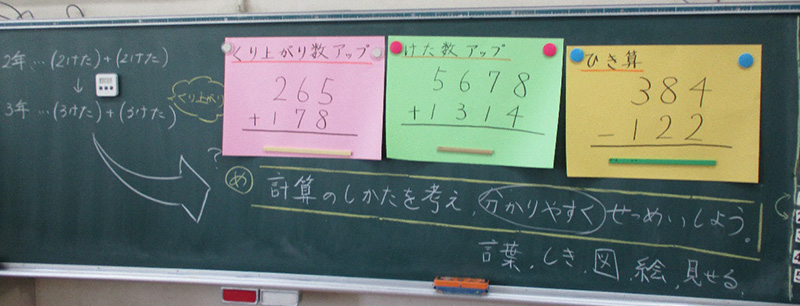 2年…(2けた)+(2けた)
↓
3年…(3けた)+(3けた)
くり上がり
?
くり上がり数アップ
265
+178
けた数アップ
5678
+1314
ひき算
384
-122
め 計算のしかたを考え、分かりやすくせつめいしよう。
言葉、しき、図、絵、見せる、